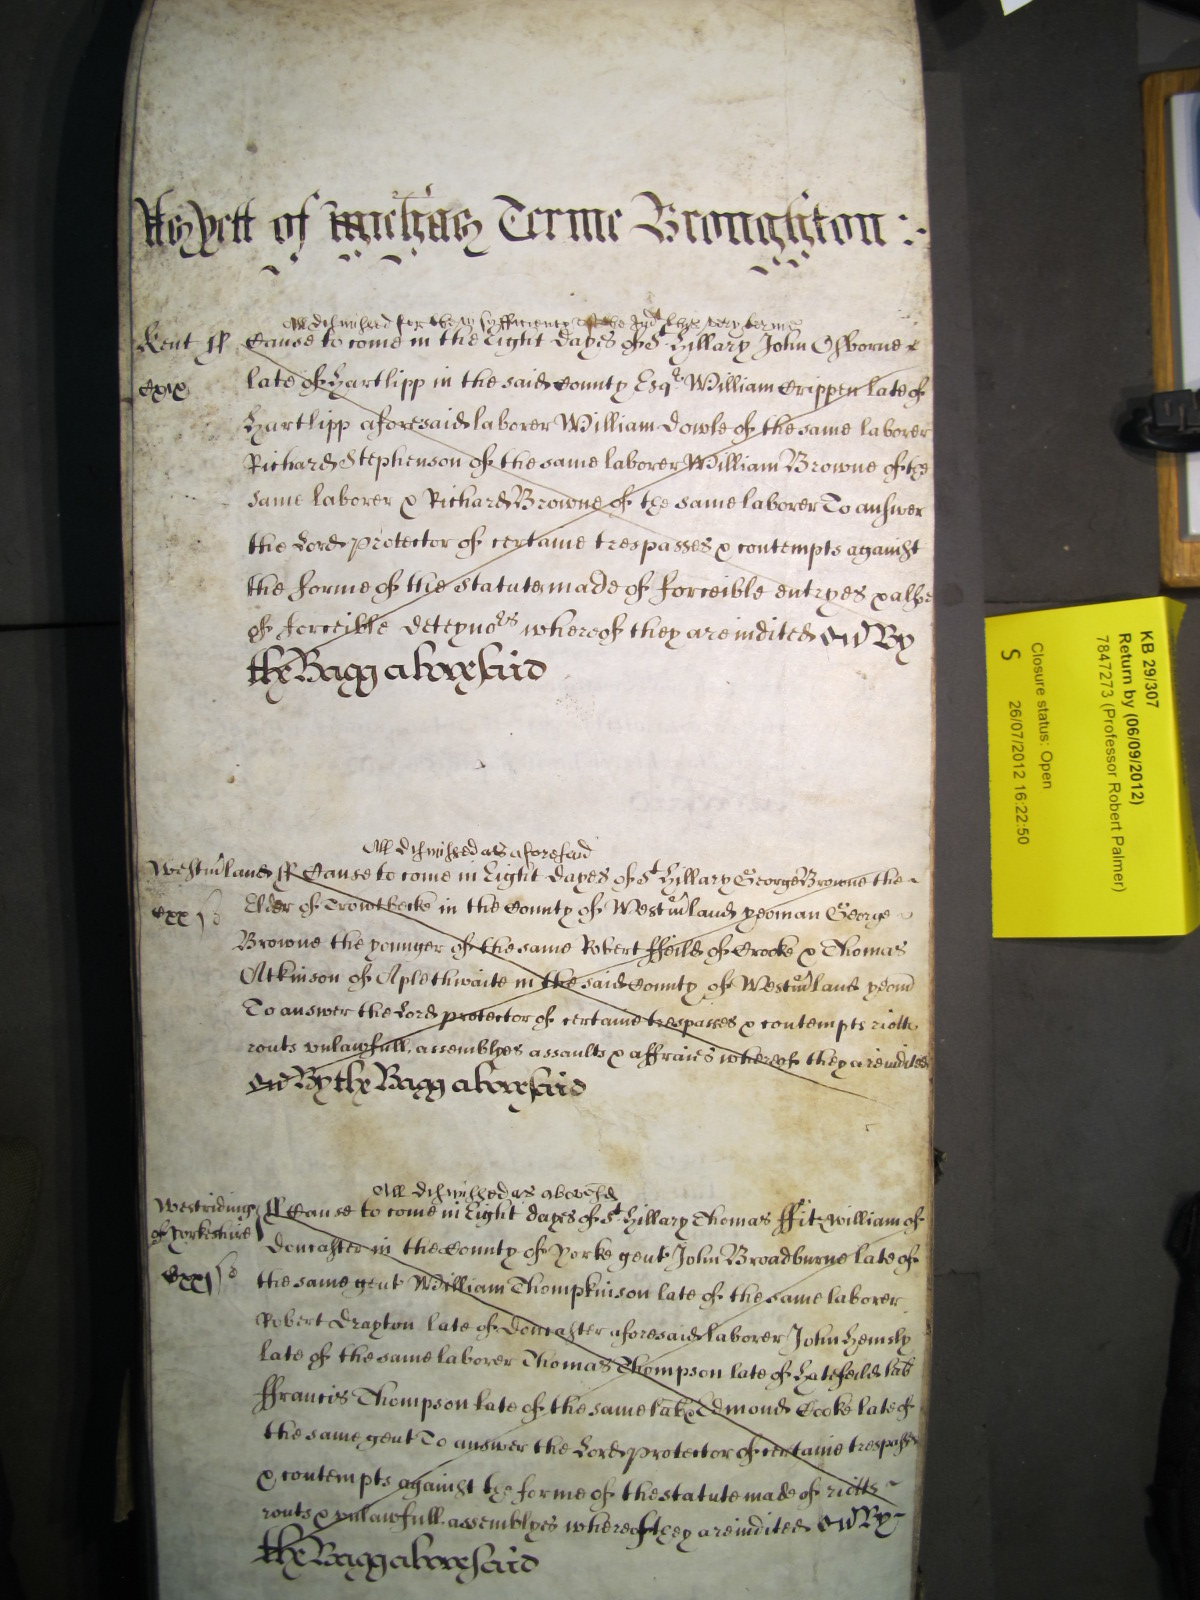 Yett of Michas Terme Broughton :
All dismissed for the insufficiency of the Indt this very terme
Kent ss Cause to come in the Eight dayes of St Hillary John Osborne
cxix
late of Hartlipp in the said County Esqr William Crippen late of
Hartlipp aforesaid laborer William Dowle of the same laborer
Richard Stephenson of the same laborer William Browne of the
same laborer & Richard Browne of the same laborer To answer
the Lord Protector of certaine trespasses & contempts against
the forme of the Statute made of forceible entryes & alsoe
of forceible deteynors whereof they are indited By
the Bagg abovesaid
All dismissed as aforesaid
Westmland ss Cause to come in Eight dayes of St Hillary George Browne the
cxx
Elder of Trowtbecke in the County of Westmland yeoman George
Browne the younger of the same Robert ffeild of Crooke & Thomas
Atkinson of Aplethwaite in the said County of Westmland yeom
To answer the Lord protector of certaine trespasses & contempts riotts
routs unlawfull assemblyes assaults & affraies whereof they are indited
By the Bagg abovesaid
All dismissed as abovesd
Westriding of Yorkeshire ss Cause to come in Eight dayes of St Hillary Thomas ffitzwilliam of
Doncaster in the County of Yorke gent John Broadburne late of
cxxi
the same gent William Thompkinson late of the same laborer
Robert Drayton late of Doncaster aforesaid laborer John Hemsly
late of the same laborer Thomas Thompson late of Hatefeild lab
ffrancis Thompson late of the same lab & Edmond Cooke late of
the same gent To answer the Lord protector of certaine trespasses
& contempts against the forme of the statute made of riotts
routs & unlawfull assemblyes whereof they are indited By
the Bagg abovesaid
KB 29/307
Return by (06/09/2012)
7847273 (Professor Robert Palmer)
Closure status: Open
S 26/07/2012 16:22:50